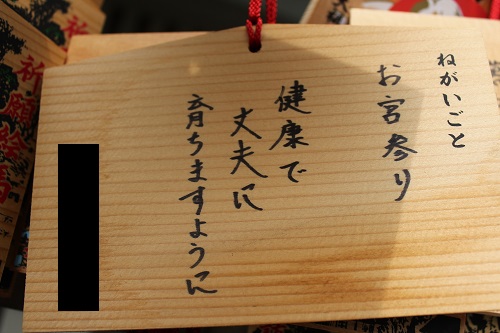 ねがいごと
お宮参り
健康で
丈夫に
育ちますように
祈願絵馬
祈